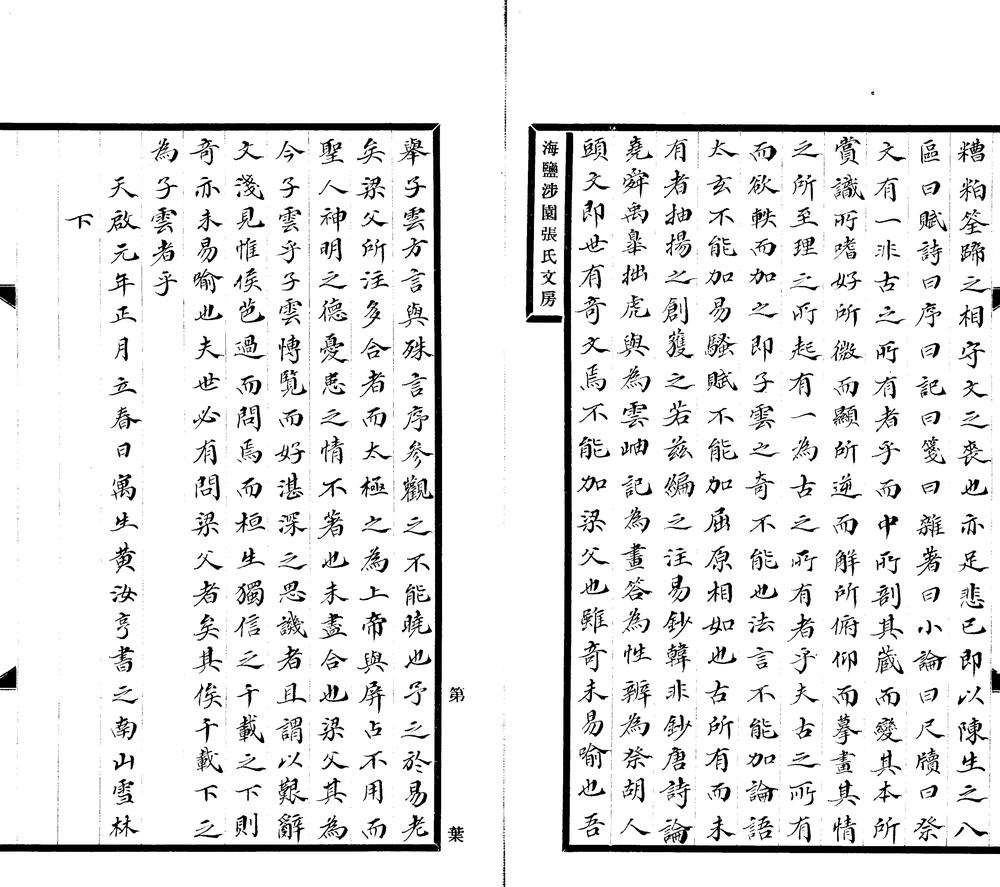 糟粕筌蹄之相守文之喪也亦足悲已即以陳生之八
區曰賦詩曰序曰記曰箋曰雜著曰小論曰尺牘曰祭
文有一非古之所有者乎而中所剖其藏而變其本所
賞識所嗜好所微而顯所逆而解所俯仰而摹畫其情
之所至理之所起有一為古之所有者乎夫古之所有
而欲軼而加之即子雲之奇不能也法言不能加論語
太玄不能加易騷賦不能加屈原相如也古所有而未
有者抽揚之創獲之若茲編之注易鈔韓非鈔唐詩論
堯舜禹皋拙虎與為雲岫記為畫答為性辨為祭胡人
頭文即世有奇文焉不能加梁父也雖奇未易喻也吾
海鹽涉園張氏文房
舉子雲方言與殊言序參觀之不能曉也予之於易老
矣梁父所注多合者而太極之為上帝與屏占不用而
聖人神明之德憂患之情不著也未盡合也梁父其為
今子雲乎子雲博覽而好湛深之思譏者且謂以艱辭
文淺見惟侯芭過而問焉而桓生獨信之千載之下則
奇亦未易喻也夫世必有問梁父者矣其俟千載下之
為子雲者乎
天啟元年正月立春日寓生黄汝亨書之南山雪林
下
第
葉